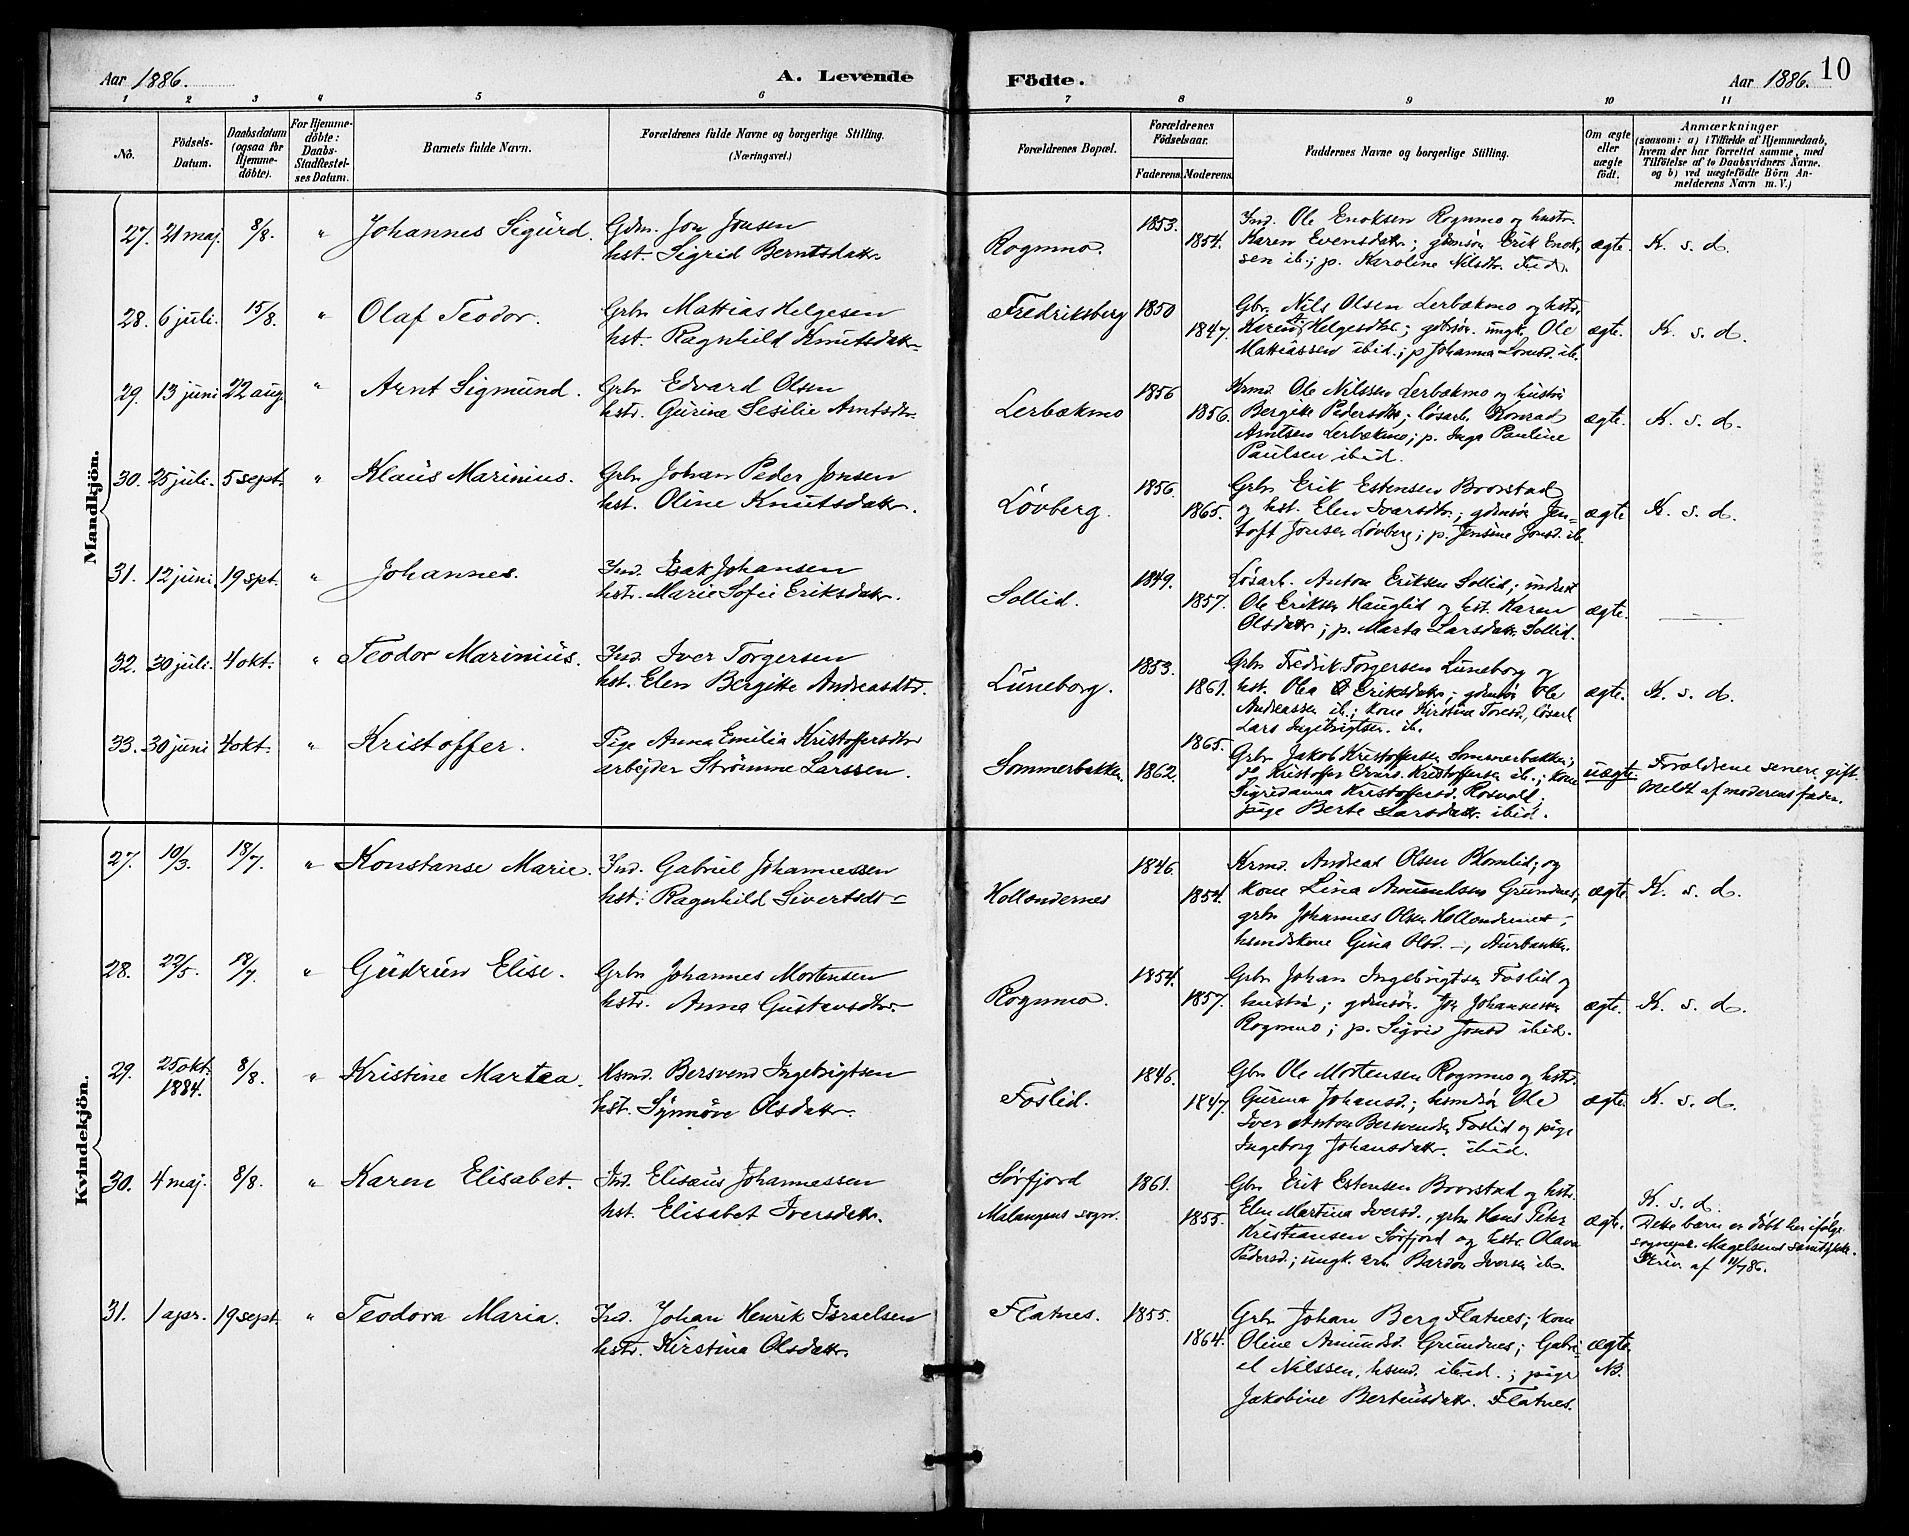 Aar 1886. A. Levende Födte. Aar 1886. 10
1 2 3 4 5 6 7 8 9 10 11
No.
Födsels-Datum.
Daabsdatum (ogsaa for Hjemmedöbte).
For Hjemmedöbte: Daabs-Stadfæstelses Datum.
Barnets fulde Navn.
Forældrenes fulde Navne og borgerlige Stilling. (Næringsvei.)
Forældrenes Bopæl.
Forældrenes Födselsaar.
Faderens. Moderens.
Faddernes Navne og borgerlige Stilling.
Om ægte eller uægte födt.
Anmærkninger
(saasom: a) i Tilfælde af Hjemmedaab,
hvem der har forrettet samme, med
Tilföielse af to Daabsvidners Navne.
og b) ved uægtefödte Börn Anmelderens Navn m. V.)
Mandkjön.
27. 21 maj. 8/8. " Johannes Sigurd. Gdm. Jon Jonsen
hst. Sigrid Berntsdatr.
Rognmo. 1853. 1854.
Ind. Ole Enoksen Rognmo og hustr.
Karen Evensdatr; gdmsön Erik Enok-
sen ib.; p. Karoline Nilsdtr. ibid.
ægte. K. s. d.
28. 6 juli. 15/8. " Olaf Teodor. Grbr. Mattias Helgesen
hst. Ragnhild Knutsdatr
Fredriksberg 1850 1847.
Gbr. Nils Olsen Lerbækmo og hstr.
Karen Helgesdtr.; gdmsör. ungk. Ole
Mattiassen ibid.; p. Johanna Lornsd. ib.
ægte. K. s. d.
29. 13 juni 22 aug. " Arnt Sigmund. Grbr Edvard Olsen
hstr. Gurine Sesilie Arntsdtr.
Lerbækmo 1856 1856.
Krmd. Ole Nilssen Lerbækmo og hustru
Bergitte Pedersdtr; løsarb. Konrad
Arntsen Lerbækmo; p. Inga Pauline
Paulsen ibid.
ægte. K. s. d.
30. 25 juli. 5 sept. " Klaus Marinius. Grbr Johan Peder Jonsen
hst. Oline Knutsdatr.
Løvberg. 1856. 1865.
Grbr Erik Estensen Brorstad
og hst. Elen Ivarsdtr.; gdmsön Jen-
toft Jonsen Løvberg; p. Jensine Jonsd. ib.
ægte K. s. d.
31. 12 juni. 19 spt. " Johannes. Ind. Isak Johansen
hstr. Marie Sofie Eriksdatr.
Sollid. 1849. 1857.
Løsarb. Anton Eriksen Sollid; inderst
Ole Eriksen Hauglid og hst. Karen
Olsdatr; p. Marta Larsdatr Sollid.
ægte. —
32. 30 juli. 4 okt. " Teodor Marinius. Ind. Iver Torgersen
hst. Elen Bergitte Andreasdtr.
Luneborg. 1853. 1861.
Grbr Fredrik Torgersen Luneborg og
hst. Olea Eriksdatr; gdmsön Ole
Andreassen ib.; kone Kirstina Toresd., løsarb.
Lars Ingebrigtsen. ib.
ægte. K. s. d.
33. 30 juni 4 okt. " Kristoffer. Pige Anna Emilia Kristoffersdtr
arbejder Strømme Larssen.
Sommerbakken. 1865. 1862.
Grbr Jakob Kristoffersen Sommerbakken;
do Kristoffer Kristoffersen ib.; kone
Sigridanna Kristoffersd. Rosvold;
pige Berte Larsdatr. ibid.
uægte. Forældrene senere gift.
Meldt af moderens fader.
Kvindekjön.
27. 10/3. 18/7. " Konstanse Marie. Ind. Gabriel Johannessen
hst. Ragnhild Sivertsdtr
Hollendernes 1846. 1854.
Krmd. Andreas Olsen Blomlid; og
kone Lina Amundsen Grundnes;
grbr Johannes Olsen Hollendernes;
hsmdskone Gina Olsd. —, Aurbanken.
ægte. K. s. d.
28. 22/5. 18/7. " Gudrun Elise. Grbr Johannes Mortensen
hstr. Anna Gustavsdtr.
Rognmo. 1854. 1857.
Grbr Johan Ingebrigtsen Foslid og
hustru; gdmsör. Jon Johannessen
Rognmo; p. Sigrid Jonsd ibid.
ægte. K. s. d.
29. 25 okt. 1884. 8/8. " Kristine Martea. Hsmd. Bersvend Ingebrigtsen
hst. Synnöve Olsdatr.
Foslid. 1846. 1847.
Gbr. Ole Mortensen Rognmo og hstr.
Gurina Johansd.; hsmdsön Ole
Iver Anton Bersvendsen Foslid og pige
Ingeborg Johansdatr. ibid.
ægte. K. s. d.
30. 4 maj. 8/8. " Karen Elisabet. Ind. Elisæus Johannessen
hst. Elisabet Iversdatr.
Sørfjord
Malangens sogn. 1861. 1855.
Gbr. Erik Estensen Brorstad og hstr.
Elen Martina Iversd., grbr Hans Peter
Kristiansen Sørfjord og hstr. Olava
Pedersd.; ungk. arb. Bardon Iversen ib.
ægte. K. s. d.
Dette barn er døbt her ifølge
sognepr. Magelsens samtykke-
skriv. af 11/7 86.
31. 1 apr. 19 sept. " Teodora Maria. Ind. Johan Henrik Israelsen
hstr. Kirstina Olsdatr.
Flatnes. 1855. 1864.
Grbr Johan Berg Flatnes; kone
Oline Amundsd. Grundnes; Gabri-
el Nilssen, hsmd. ibid.; pige
Jakobine Berteusdatr. Flatnes.
ægte.
NB.